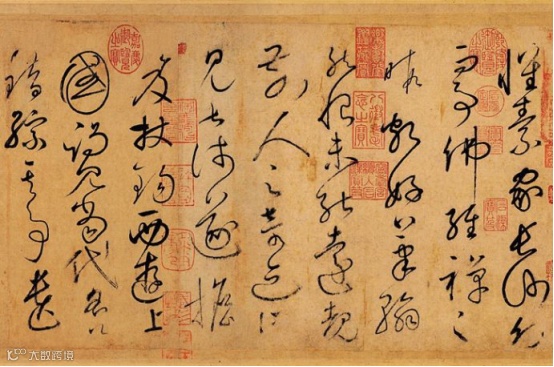 懷素家長沙幼
而事佛經禪之
暇頗好筆翰
然恨未能遠覩
前人之奇迹所
見甚淺遂擔
笈杖錫西遊上
國謁見當代名公
錯綜其事遺
大数跨境